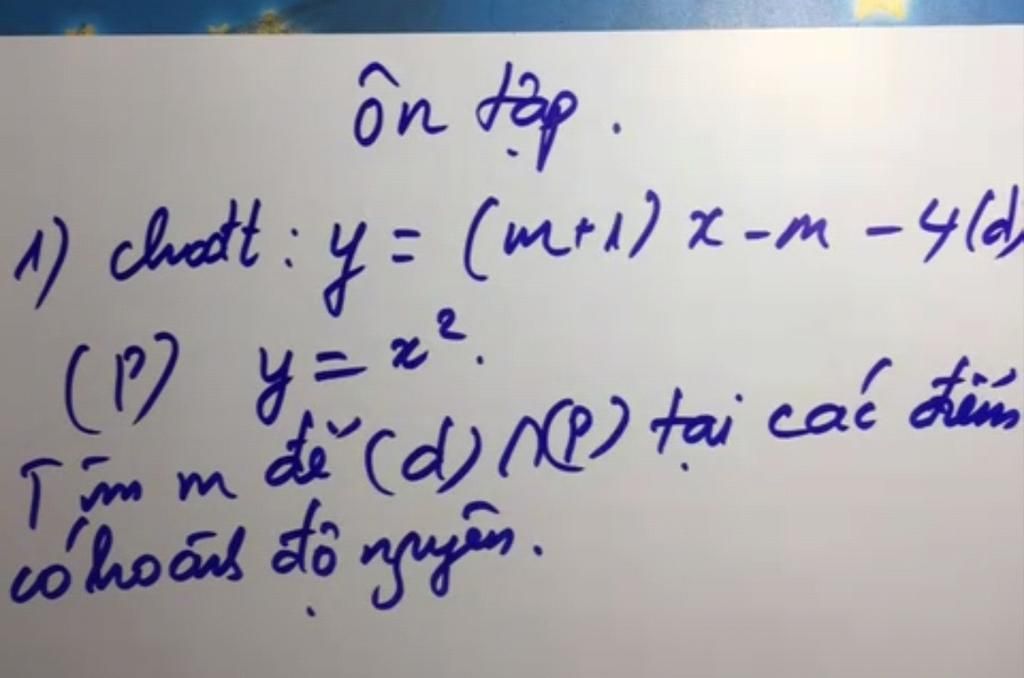 ôn tập.
1) cho đtt: y = (m+1) x - m - 4 (d)
(P) y = x².
Tìm m để (d) ∩ (P) tại các điểm
có hoành độ nguyên.